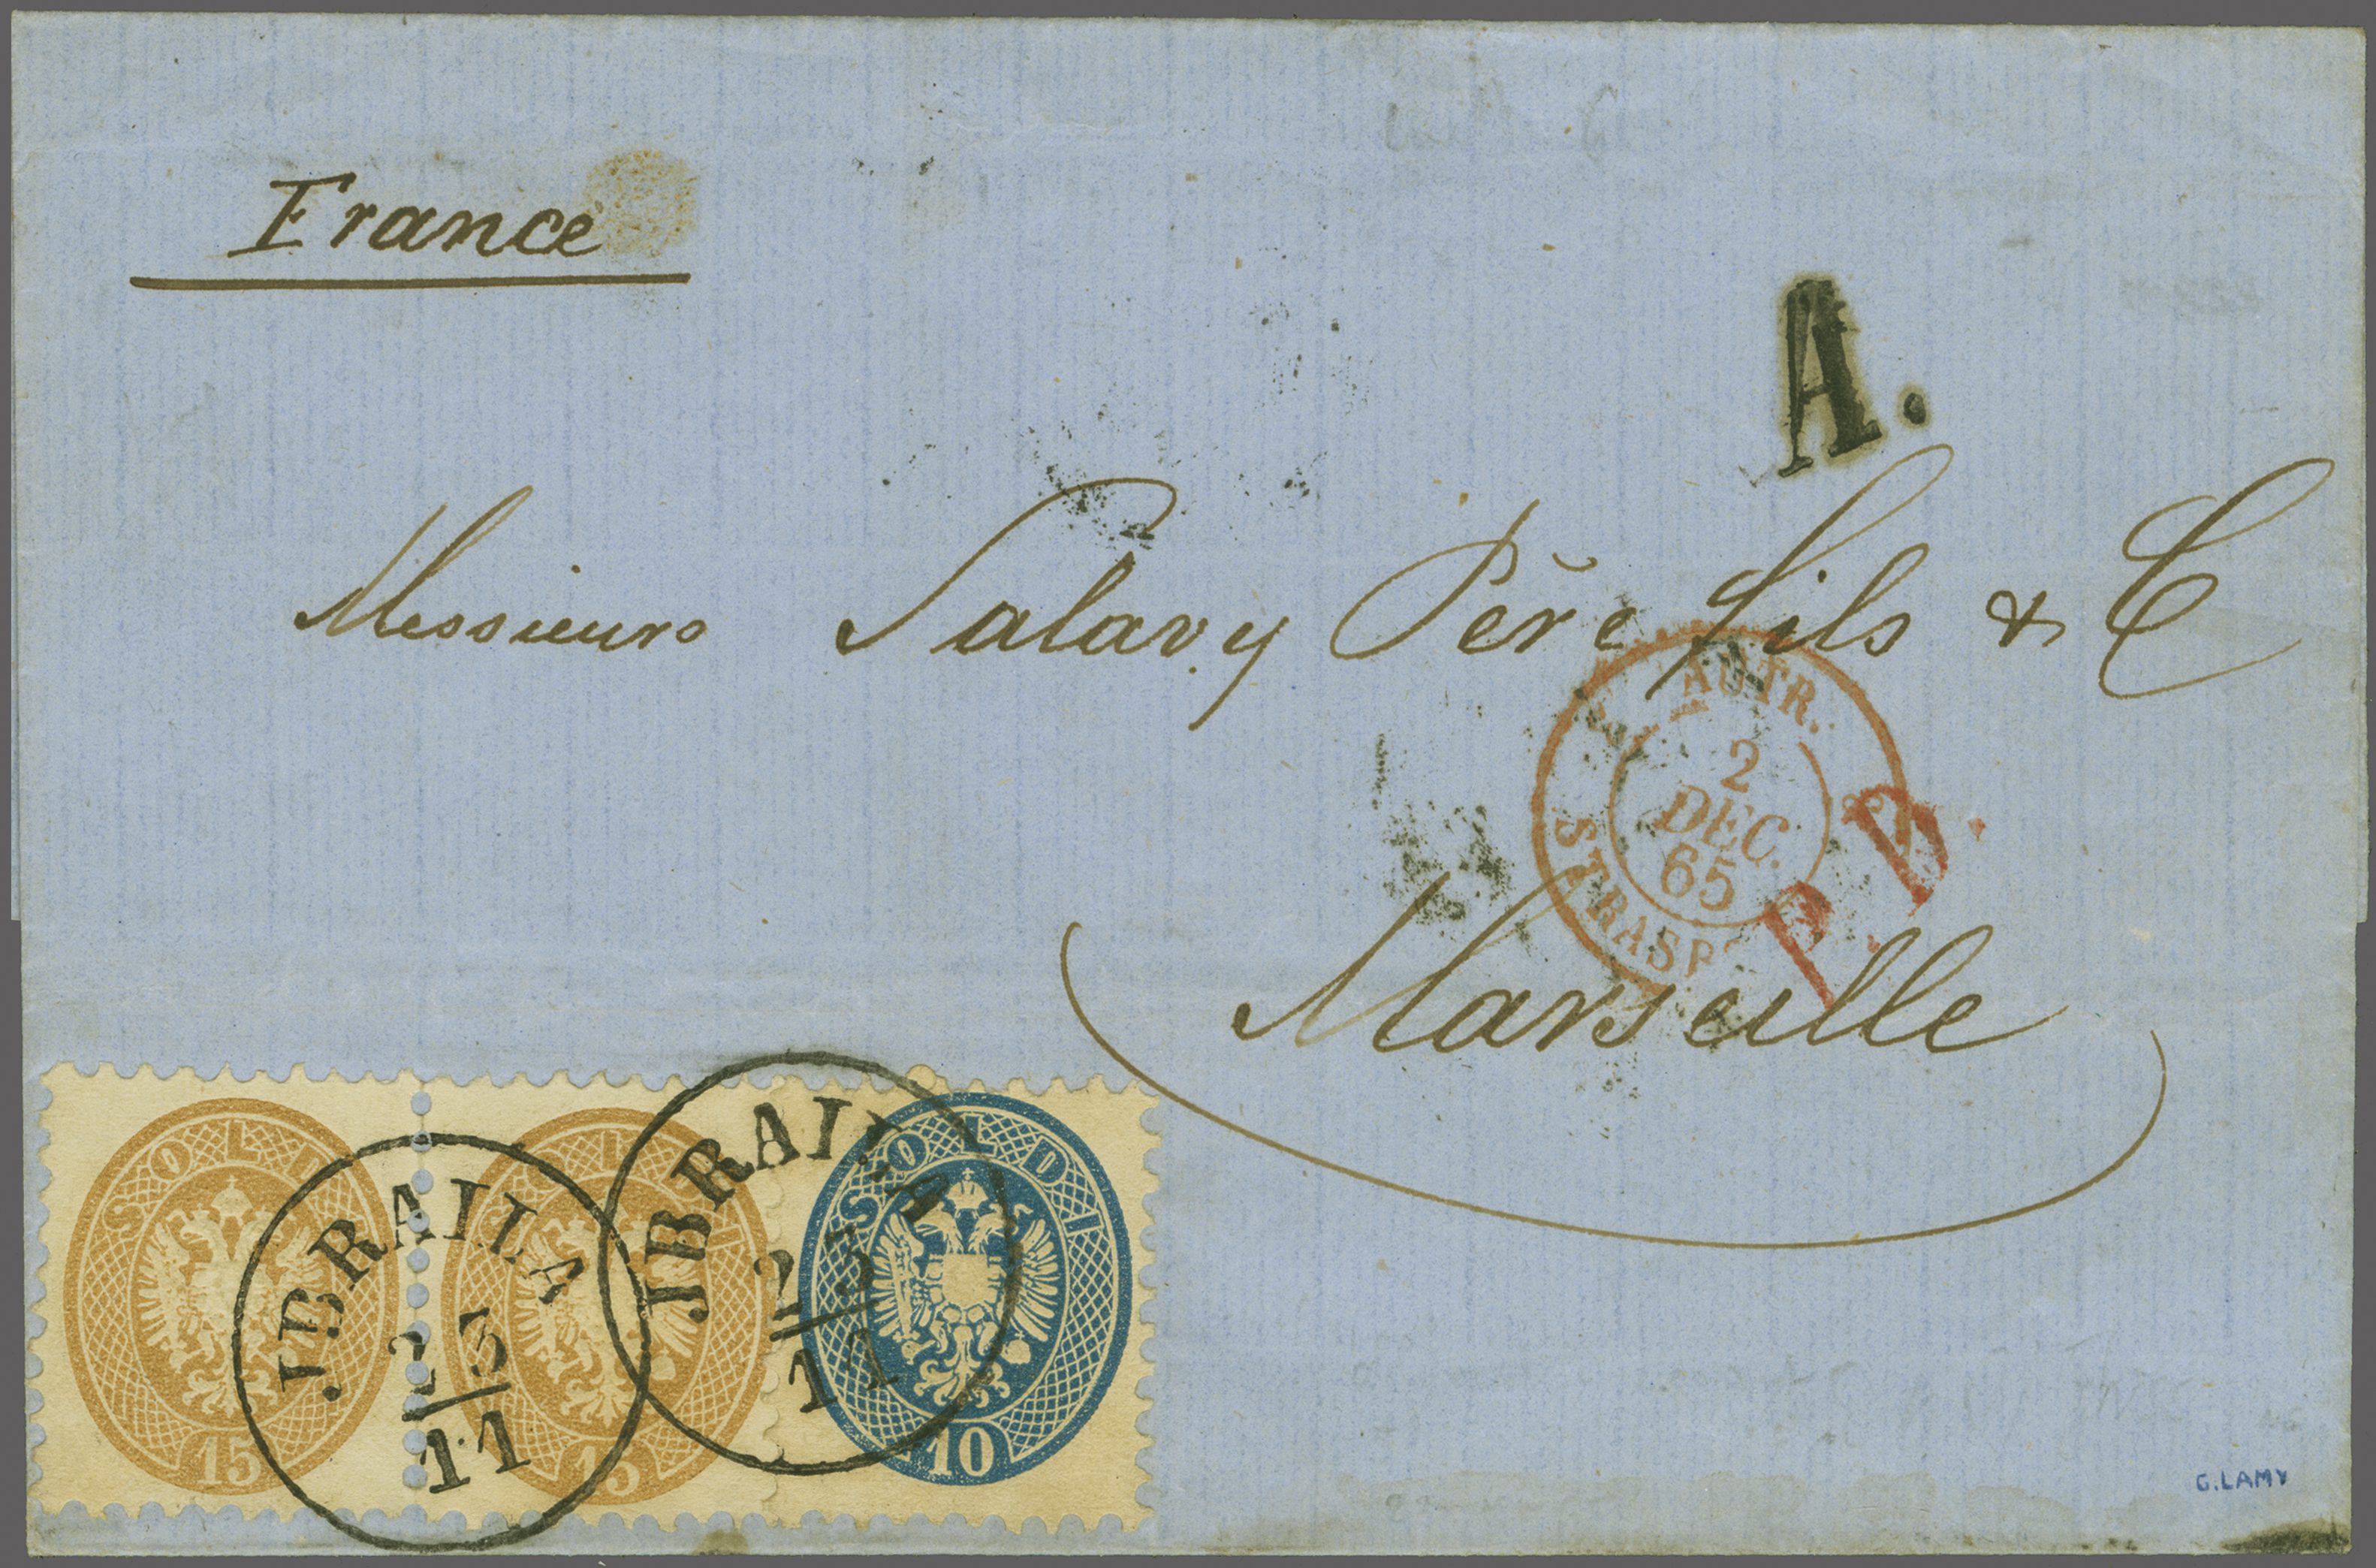 France
A.
Messieurs Salavy Père fils & C
AUTR.
2
DEC.
65
STRASB
P.D.
Marseille
SOLDI
15
JBRAILA
23
11
SOLDI
15
JBRAILA
23
11
SOLDI
10
G.LAMY